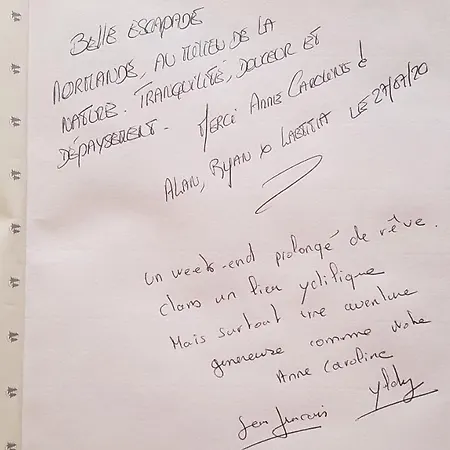 BELLE ESCAPADE
NORMANDE, AU MILIEU DE LA
NATURE. TRANQUILITÉ, DOUCEUR ET
DÉPAYSEMENT. MERCI ANNE CAROLINE !
ALAN, RYAN & LAETITIA LE 27/07/20
un week-end prolongé de rêve.
dans un lieu ydifique
Mais surtout une aventure
genereuse comme notre
Anne Caroline
Jean François